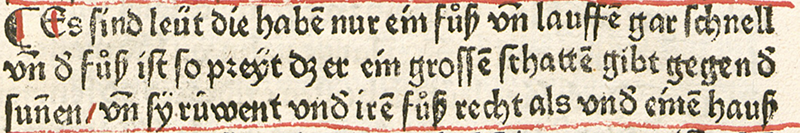 ¶ Es sind leüt die habẽ nur ein fůß vñ lauffẽ gar schnell
vñ ð fůß ist so preyt dz er ein grossẽ schattẽ gibt gegen ð
suñen / vñ sy růwent vnð irẽ fůß recht als vnð einẽ hauß